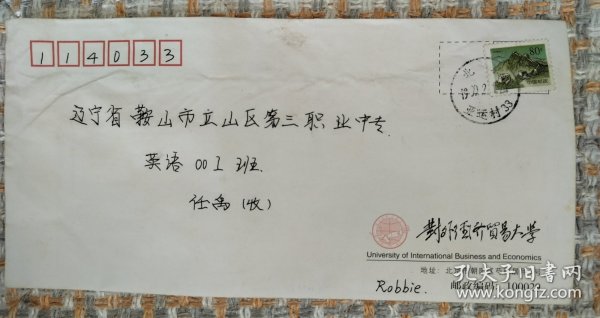 114033
80分
中国邮政
北
亚运村 33
辽宁省鞍山市立山区第三职业中专.
英语 001 班.
任禹(收)
對外經济貿易大学
University of International Business and Economics
地址: 北
Robbie.
邮政编码: 100029
孔夫子旧书网
www.kongfz.com